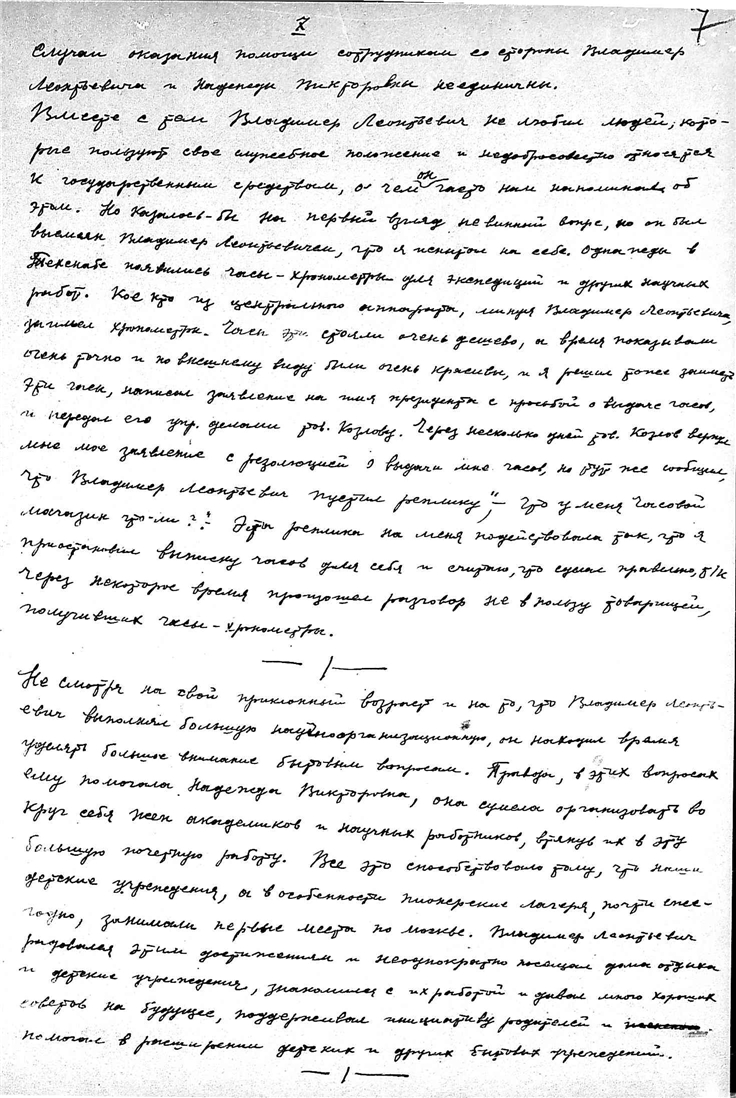 7
7
Случаи оказания помощи сотрудникам со стороны Владимер
Леонтьевича и Надежды Викторовны неединичны.
Вместе с тем Владимер Леонтьевич не любил людей, кото-
рые пользуют свое служебное положение и недобросовестно относятся
к государственным средствам, о чем он часто нам напоминал об
этом. Но казалось-бы на первый взгляд невинный вопрс, но он был
высмеян Владимер Леонтьевичем, что я испытал на себе. Однажды в
Техснабе появились часы-хронометры для экспедиций и других научных
работ. Кое кто из центрального аппарата, минуя Владимер Леонтьевича,
заимел хронометры. Часы эти стояли очень дешево, а время показывали
очень точно и по внешнему виду были очень красивы, и я решил тоже заиметь
эти часы, написал заявление на имя президента с просьбой о выдаче часов,
и передал его упр. делами тов. Козлову. Через несколько дней тов. Козлов вернул
мне мое заявление с резолюцией о выдачи мне часов, но тут же сообщил,
что Владимер Леонтьевич пустил реплику "– Что у меня часовой
магазин что-ли?". Эта реплика на меня подействовала так, что я
приостановил выписку часов для себя и считаю, что сделал правильно, т/к
через некоторое время произошел разговор не в пользу товарищей,
получивших часы-хронометры.
Не смотря на свой приклонный возраст и на то, что Владимер Леонть-
евич выполнял большую научноорганизационную, он находил время
уделять большое внимание бытовым вопросам. Правда, в этих вопросах
ему помогала Надежда Викторовна, она сумела организовать во
круг себя жен академиков и научных работников, втянув их в эту
большую почетную работу. Все это способствовало тому, что наши
детские учреждения, а в особенности пионерские лагеря, почти еже-
годно, занимали первые места по москве. Владимер Леонтьевич
радовался этим достижениям и неоднократно посещал дома отдыха
и детские учреждения, знакомился с их работой и давал много хороших
советов на будущее, поддерживал инициативу родителей и
помогал в расширении детских и других бытовых учреждений.